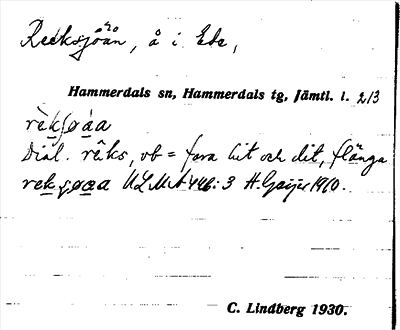 Recksjöån, å i Ede,
Hammerdals sn, Hammerdals tg, Jämtl. l. 213
rèkʃøàa
Dial. rêks, vb = fara hit och dit, flänga
rekʂøœa ULMA 446:3 H. Geijer 1910.
C. Lindberg 1930.